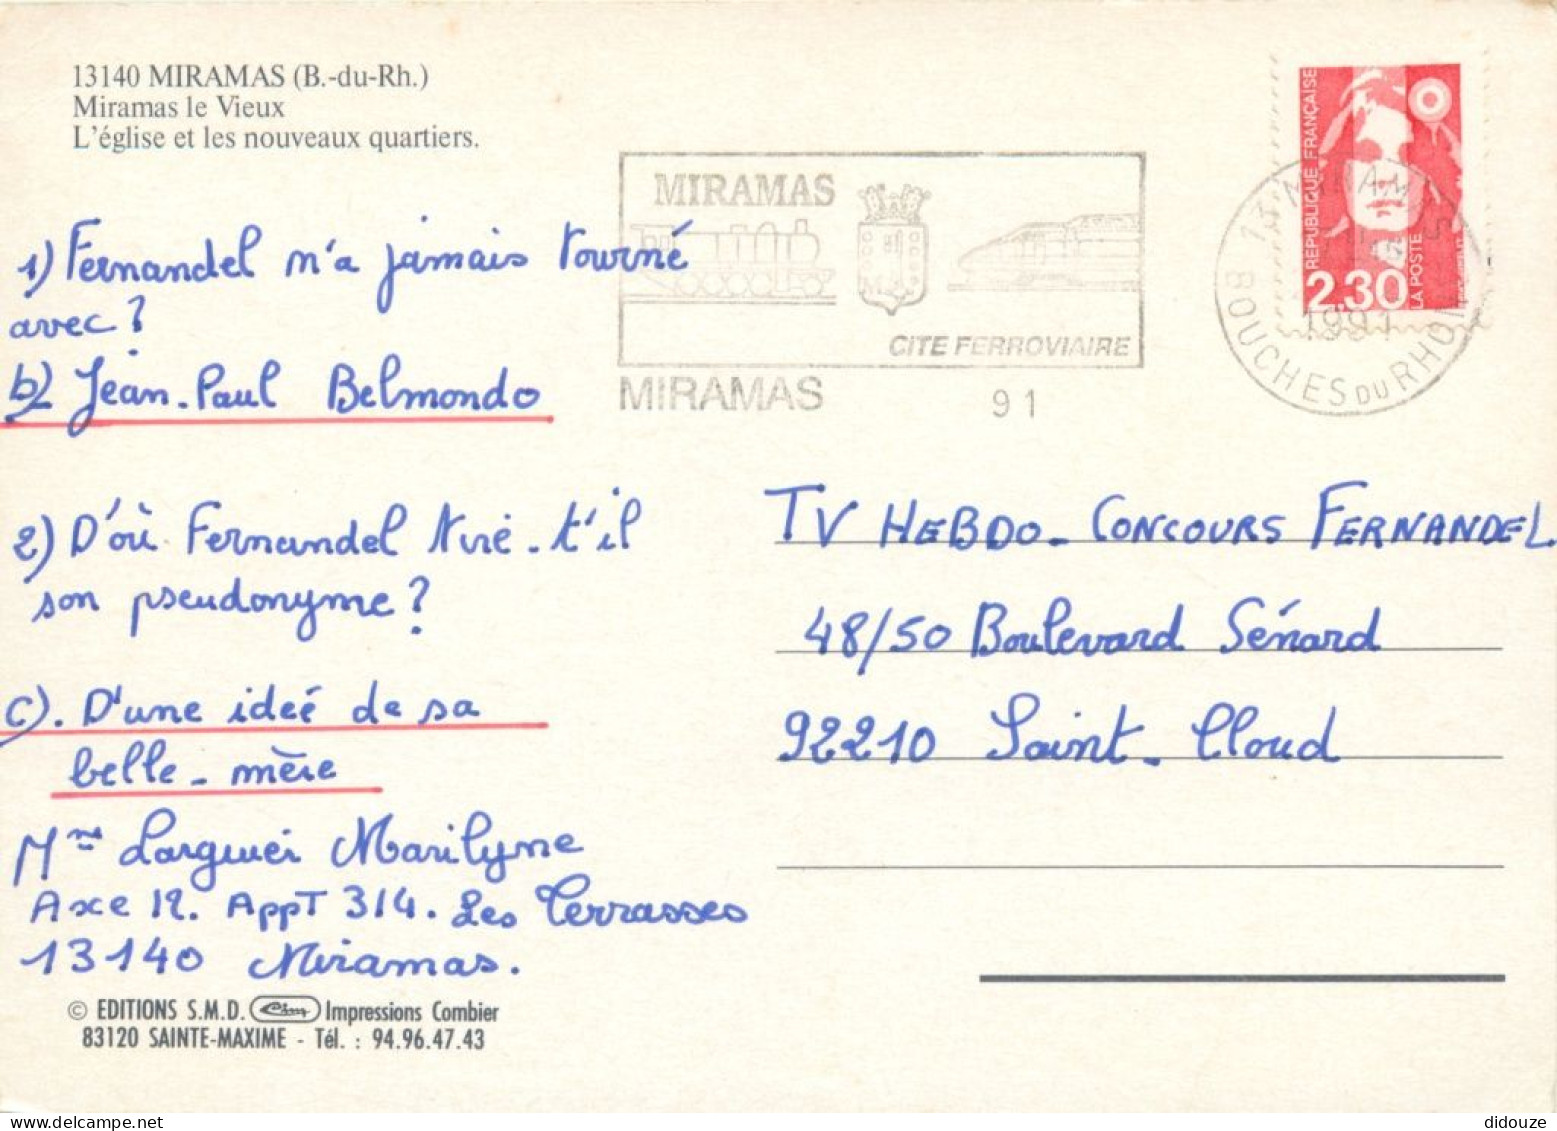 13140 MIRAMAS (B.-du-Rh.)
Miramas le Vieux
L'église et les nouveaux quartiers.
1) Fernandel n'a jamais tourné
avec?
b) Jean-Paul Belmondo
2) D'où Fernandel tire-t'il
son pseudonyme?
c). D'une ideé de sa
belle-mère
Mme Larguier Marilyne
Axe 12. AppT 314. Les Terrasses
13140 Miramas.
© EDITIONS S.M.D. Cim Impressions Combier
83120 SAINTE-MAXIME - Tél. : 94.96.47.43
MIRAMAS
CITE FERROVIAIRE
MIRAMAS 91
REPUBLIQUE FRANÇAISE
2,30
LA POSTE
13 MIRAMAS
1991
BOUCHES DU RHONE
TV HEBDO - CONCOURS FERNANDEL
48/50 Boulevard Sénard
92210 Saint-Cloud
didouze